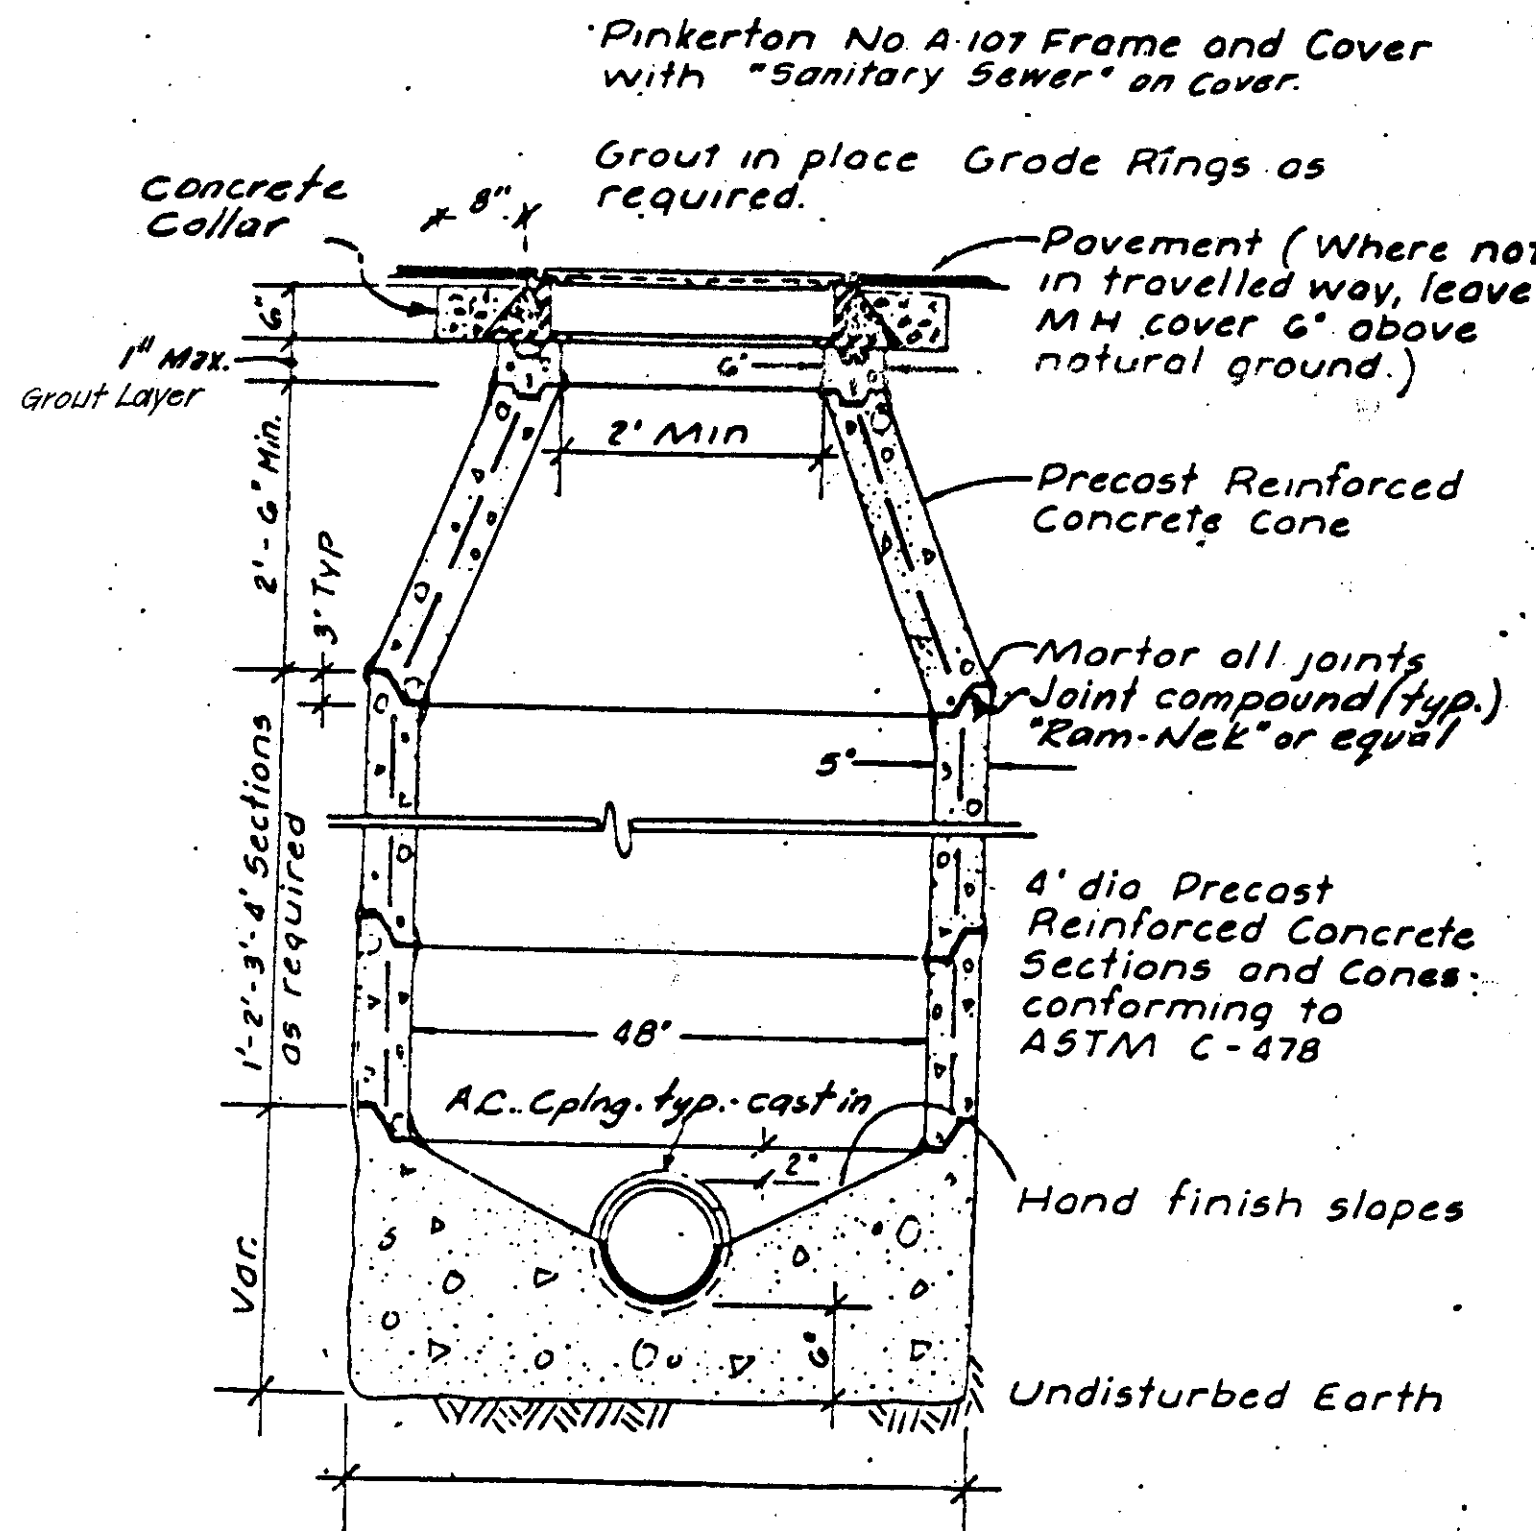 Pinkerton No. A-107 Frame and Cover
with "Sanitary Sewer" on Cover.
Grout in place Grade Rings as
required.
Concrete
Collar
8"
Pavement (Where not
in travelled way, leave
MH cover 6" above
natural ground.)
6"
1" Max.
Grout Layer
6"
2' Min
2'-6" Min.
3" Typ
Precast Reinforced
Concrete Cone
Mortar all joints
Joint compound (typ.)
"Ram-Nek" or equal
5"
1'-2'-3'-4' Sections
as required
4' dia Precast
Reinforced Concrete
Sections and Cones
conforming to
ASTM C-478
48"
A.C. Cplng. typ. - cast in
2"
Hand finish slopes
Var.
6"
Undisturbed Earth